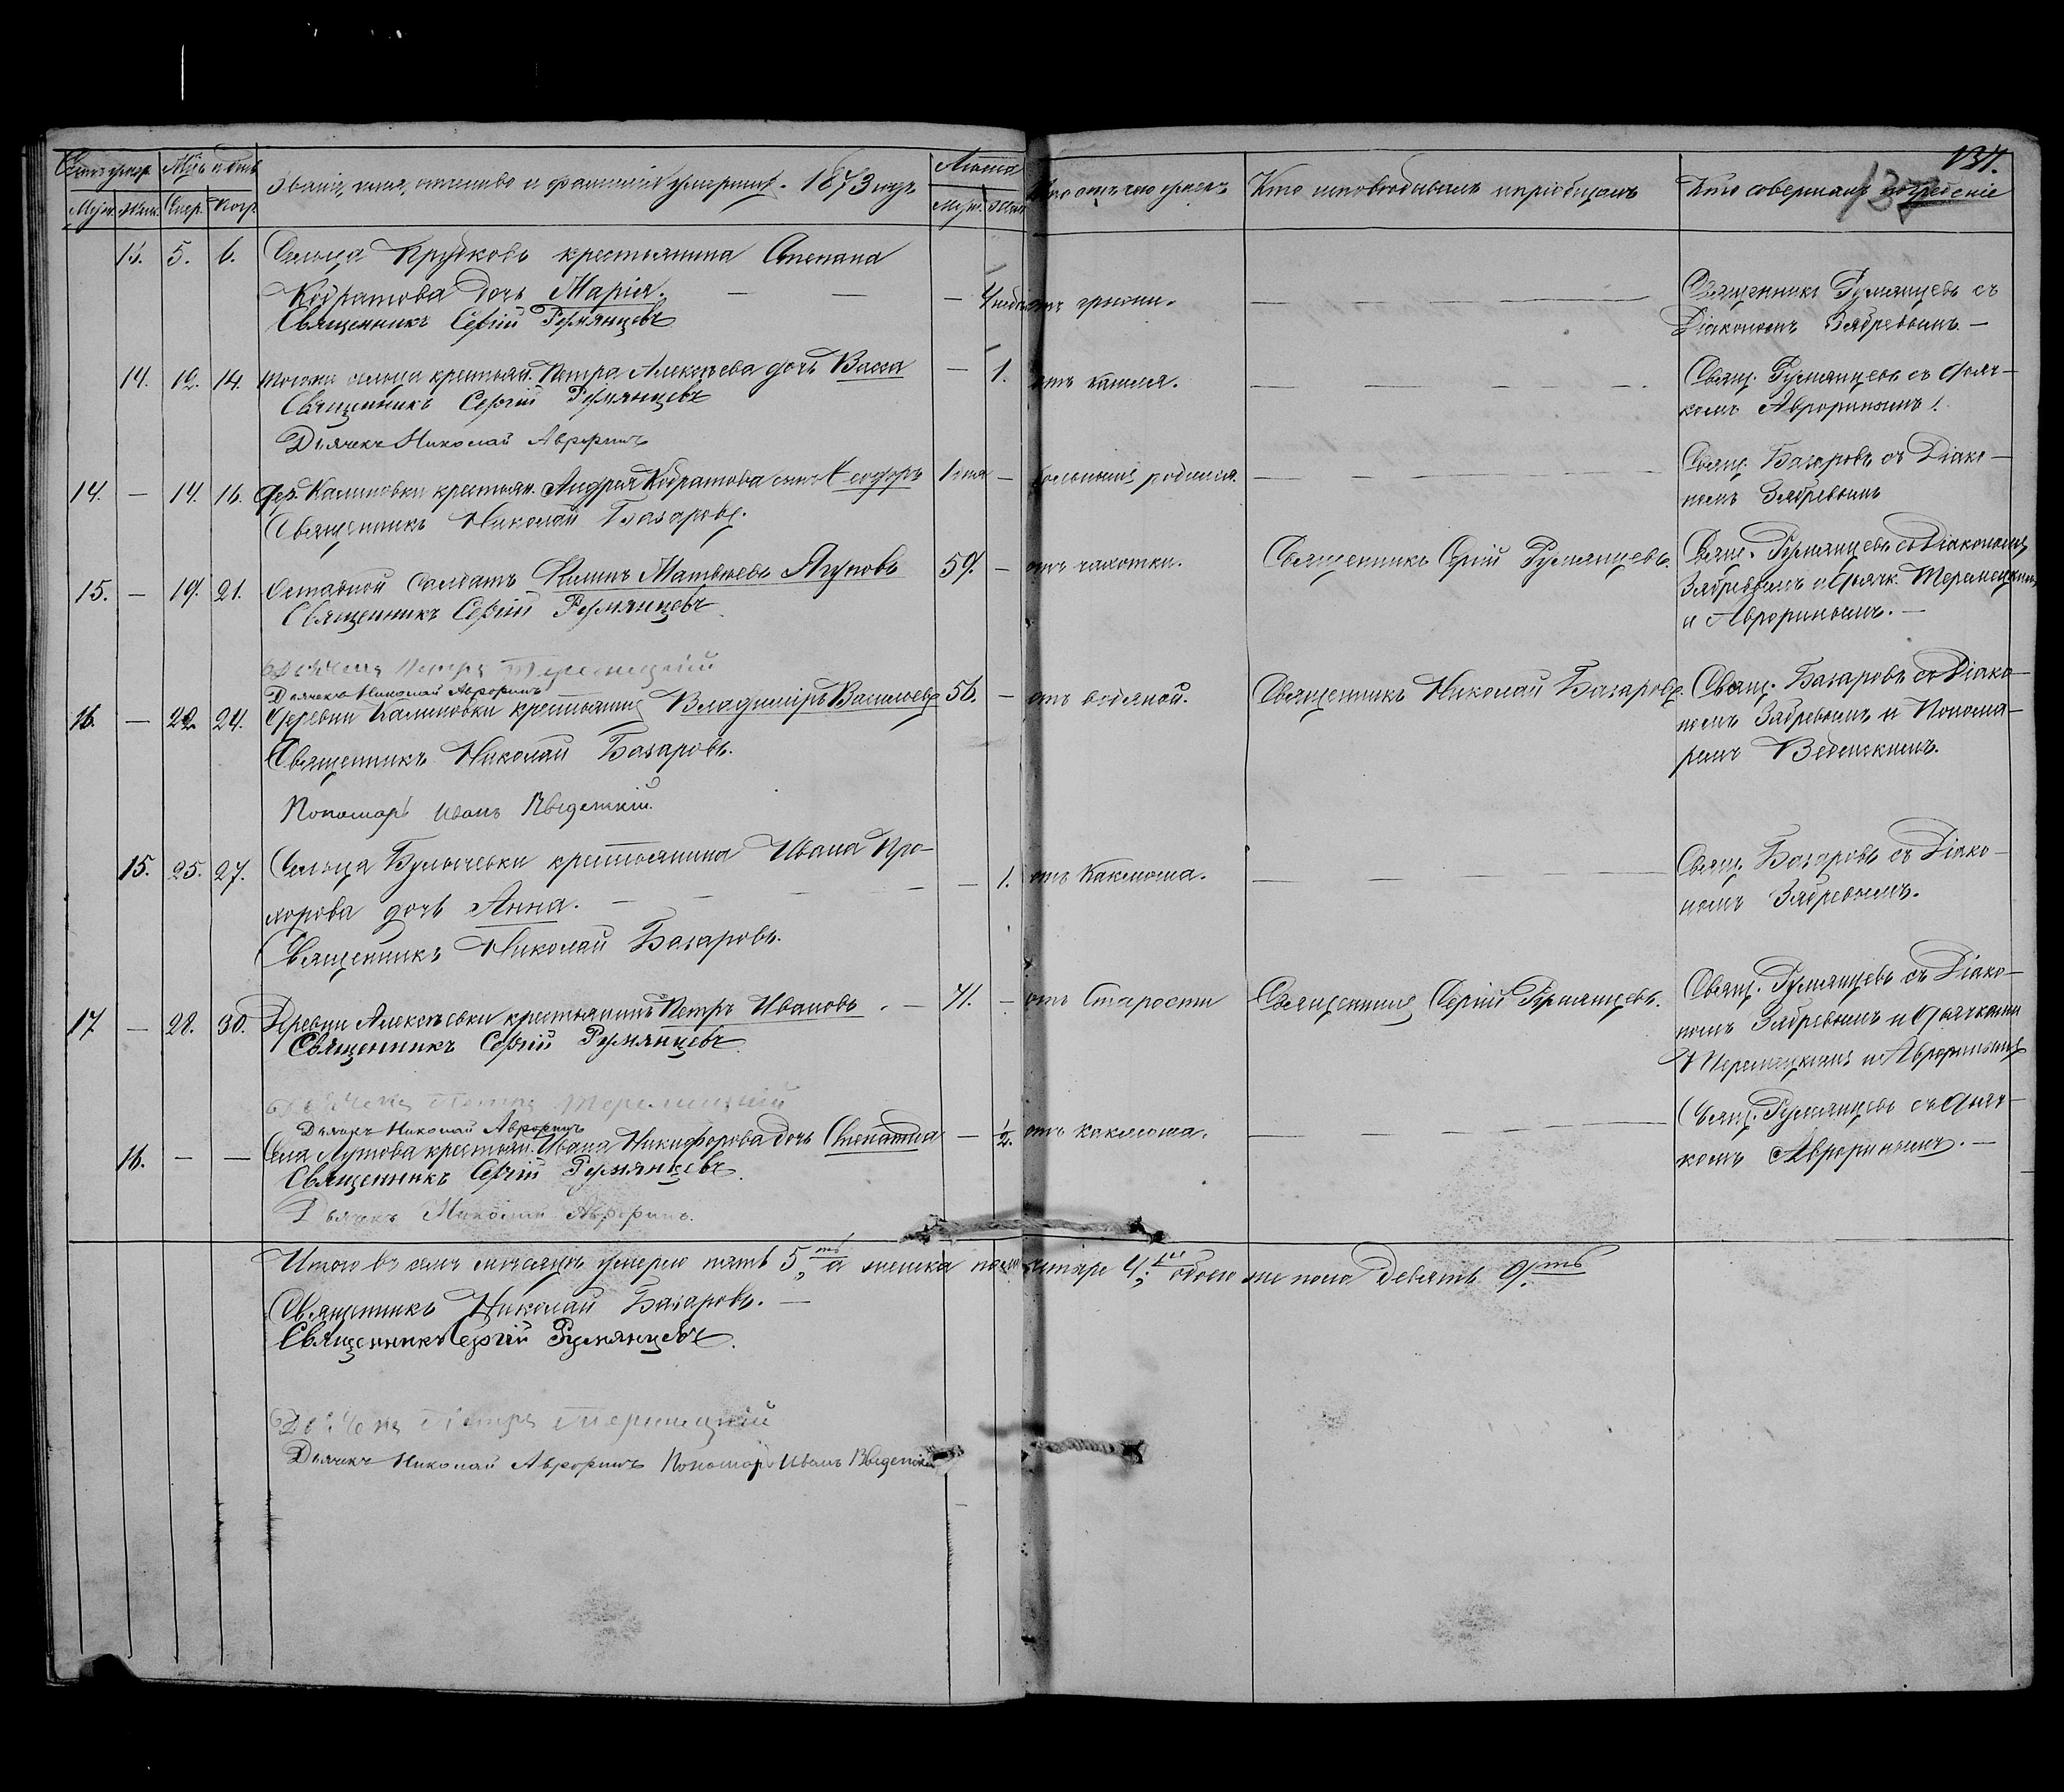 137.
137
Счетъ умер. Мѣс. и день Званіе, имя, отчество и фамилія умершихъ. 1873 годъ Лѣта Кто отъ чего умеръ Кто исповѣдывалъ и пріобщалъ Кто совершалъ погребеніе
Муж. Жен. Смер. Погр. Муж. Жен.
13. 5. 6. Сельца Крубковъ крестьянина Степана
Кодратова дочь Марія. — — — 4 нед. отъ грыжи. — — — Священникъ Румянцевъ съ
Священникъ Сергій Румянцевъ Діакономъ Зябревымъ. —
14. 12. 14. того же сельца крестьян. Петра Алексѣева дочь Васса — 1. отъ кашля. — — — Свящ. Румянцевъ съ дьяч-
Священникъ Сергій Румянцевъ комъ Аврориномъ.
Дьячекъ Николай Авроринъ
14. — 14. 16. дер. Калиновки крестьян. Андрея Кодратова сынъ 1 — родился. — — — Свящ. Базаровъ съ Діако-
Священникъ Николай Базаровъ. номъ Зябревымъ
15. — 19. 21. Отставной Солдатъ Матвѣевъ Ягуповъ 59. — отъ чахотки. Священникъ Сергій Румянцевъ. Свящ. Румянцевъ съ Діакономъ
Священникъ Сергій Румянцевъ Зябревымъ и дьячк.
и Аврориномъ. —
Дьячекъ Петръ
Дьячекъ Николай Авроринъ
16. — 22. 24. Деревни Калиновки крестьянинъ Владиміръ Васильевъ 56. — отъ водяной. Священникъ Николай Базаровъ. Свящ. Базаровъ съ Діако-
Священникъ Николай Базаровъ. номъ Зябревымъ и Понома-
ремъ Веденскимъ.
Пономарь Иванъ Введенскій.
15. 25. 27. Сельца Булычевки крестьянина Ивана Про-
хорова дочь Анна. — — — — 1. отъ Каклюша. — — — Свящ. Базаровъ съ Діако-
Священникъ Николай Базаровъ. номъ Зябревымъ.
17 — 28. 30. Деревни Алексѣевки крестьянинъ Петръ Ивановъ. — 71. — отъ Старости Священникъ Сергій Румянцевъ. Свящ. Румянцевъ съ Діако-
Священникъ Сергій Румянцевъ номъ Зябревымъ и дьячками
и Аврориномъ
Дьячекъ Петръ
Дьячекъ Николай Авроринъ
16. — — Села Лутова крестьян. Ивана Никифорова дочь Степанида — 1/2. отъ каклюша. — — — Свящ. Румянцевъ съ дьяч-
Священникъ Сергій Румянцевъ. комъ Аврориномъ. —
Дьячекъ Николай Авроринъ.
Итого въ семъ мѣсяцѣ умерло пять 5ть а женска пола четыре 4ре обоего же пола девять 9ть
Священникъ Николай Базаровъ. —
Священникъ Сергій Румянцевъ.
Дьячекъ Петръ
Дьячекъ Николай Авроринъ Пономарь Иванъ Введенскій